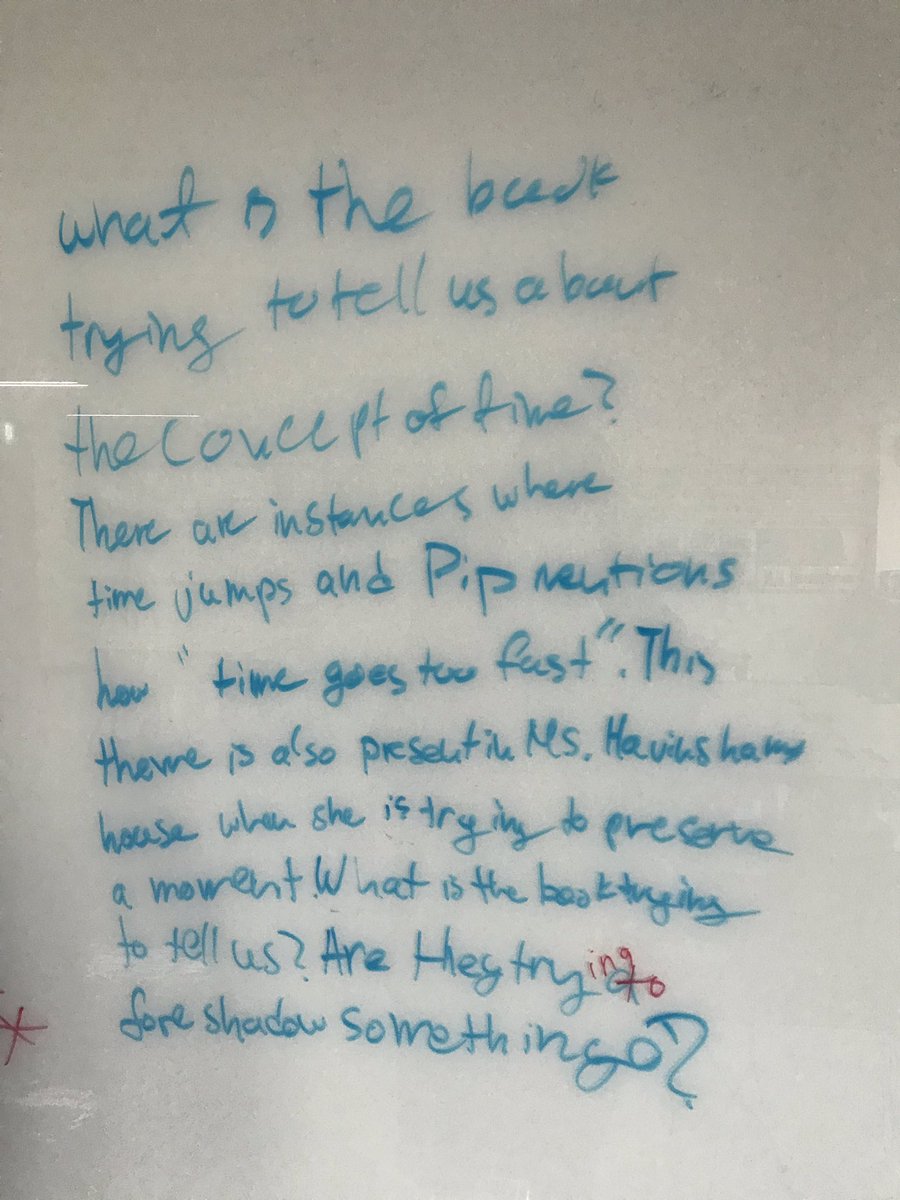 what is the book
trying to tell us about
the concept of time?
There are instances where
time jumps and Pip mentions
how "time goes too fast". This
theme is also present in Ms. Havinshams
house when she is trying to preserve
a moment. What is the book trying
to tell us? Are they trying to
foreshadow something?